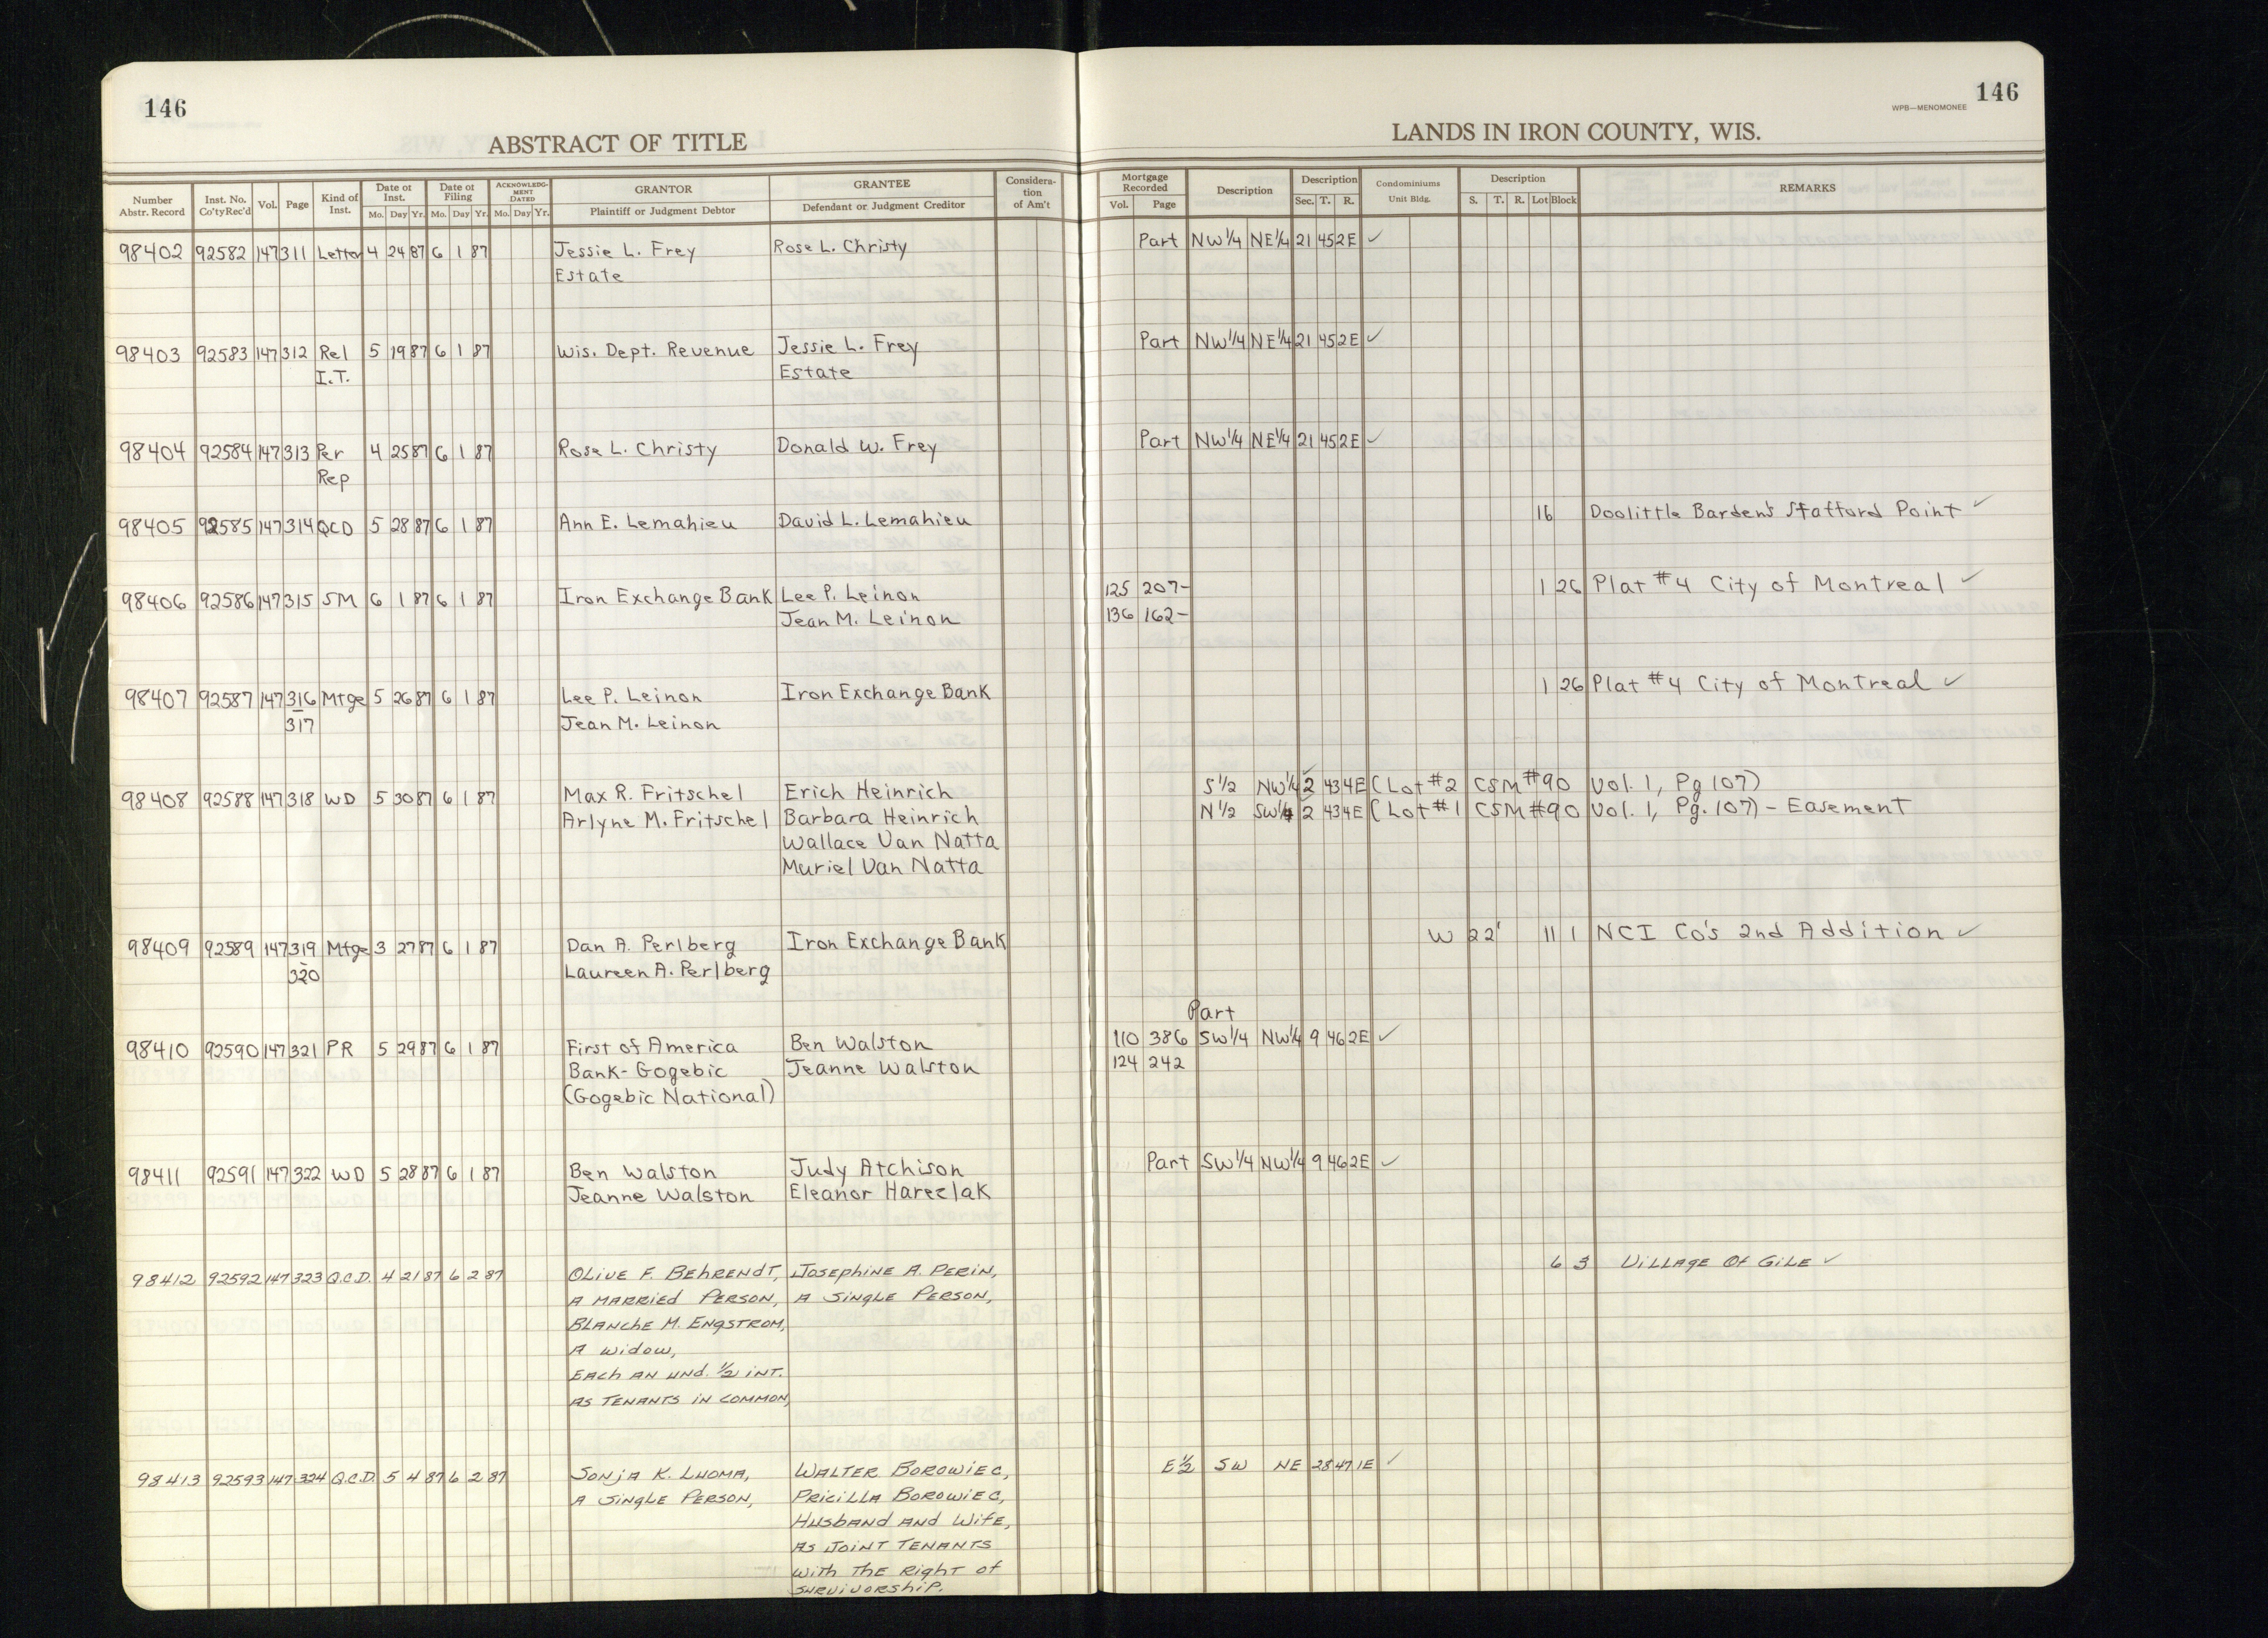 146
ABSTRACT OF TITLE
146
WPB—MENOMONEE
LANDS IN IRON COUNTY, WIS.
Number Abstr. Record | Inst. No. Co'ty Rec'd | Vol. | Page | Kind of Inst. | Date of Inst. Mo. Day Yr. | Date of Filing Mo. Day Yr. | ACKNOWLEDGMENT DATED Mo. Day Yr. | GRANTOR Plaintiff or Judgment Debtor | GRANTEE Defendant or Judgment Creditor | Consideration of Am't | Mortgage Recorded Vol. Page | Description | Description Sec. T. R. | Condominiums Unit Bldg. | Description S. T. R. Lot Block | REMARKS
98402 92582 147 311 Letter 4 24 87 6 1 87 Jessie L. Frey Rose L. Christy Part NW1/4 NE1/4 21 45 2E ✓
Estate
98403 92583 147 312 Rel 5 19 87 6 1 87 Wis. Dept. Revenue Jessie L. Frey Part NW1/4 NE1/4 21 45 2E ✓
I.T. Estate
98404 92584 147 313 Per 4 25 87 6 1 87 Rose L. Christy Donald W. Frey Part NW1/4 NE1/4 21 45 2E ✓
Rep
98405 92585 147 314 QCD 5 28 87 6 1 87 Ann E. Lemahieu David L. Lemahieu 16 Doolittle Barden's Stafford Point ✓
98406 92586 147 315 SM 6 1 87 6 1 87 Iron Exchange Bank Lee P. Leinon 125 207- 1 26 Plat #4 City of Montreal ✓
Jean M. Leinon 136 162-
98407 92587 147 316 Mtge 5 26 87 6 1 87 Lee P. Leinon Iron Exchange Bank 1 26 Plat #4 City of Montreal ✓
317 Jean M. Leinon
98408 92588 147 318 WD 5 30 87 6 1 87 Max R. Fritschel Erich Heinrich S1/2 NW1/4 2 43 4E (Lot #2 CSM #90 Vol. 1, Pg 107)
Arlyne M. Fritschel Barbara Heinrich N1/2 SW1/4 2 43 4E (Lot #1 CSM #90 Vol. 1, Pg. 107) - Easement
Wallace Van Natta
Muriel Van Natta
98409 92589 147 319 Mtge 3 27 87 6 1 87 Dan A. Perlberg Iron Exchange Bank W 22' 11 1 NCI Co's 2nd Addition ✓
320 Laureen A. Perlberg
Part
98410 92590 147 321 PR 5 29 87 6 1 87 First of America Ben Walston 110 386 SW1/4 NW1/4 9 46 2E ✓
Bank-Gogebic Jeanne Walston 124 242
(Gogebic National)
98411 92591 147 322 WD 5 28 87 6 1 87 Ben Walston Judy Atchison Part SW1/4 NW1/4 9 46 2E ✓
Jeanne Walston Eleanor Hareclak
98412 92592 147 323 Q.C.D. 4 21 87 6 2 87 OLIVE F. BEHRENDT, JOSEPHINE A. PERIN, 6 3 VILLAGE OF GILE ✓
A MARRIED PERSON, A SINGLE PERSON,
BLANCHE M. ENGSTROM,
A WIDOW,
EACH AN UND. 1/2 INT.
AS TENANTS IN COMMON,
98413 92593 147 324 Q.C.D. 5 4 87 6 2 87 SONJA K. LUOMA, WALTER BOROWIEC, E1/2 SW NE 28 47 1E ✓
A SINGLE PERSON, PRICILLA BOROWIEC,
HUSBAND AND WIFE,
AS JOINT TENANTS
WITH THE RIGHT OF
SURVIVORSHIP.